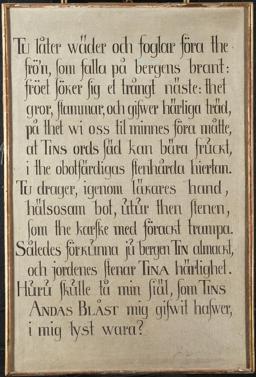 Tu låter wäder och foglar föra the
frö'n, som falla på bergens brant:
fröet söker sig et trångt näste: thet
gror, stammar, och gifwer härliga träd,
på thet wi oss til minnes föra måtte,
at TINS ords säd kan bära fruckt,
i the obotfärdigas stenhårda hiertan.
Tu drager, igenom läkares hand,
hälsosam bot, utur then stenen,
som the karske med förackt trampa.
Således förkunna ju bergen TIN almackt,
och jordenes stenar TINA härlighet.
Huru skulle tå min siäl, som TINS
ANDAS BLÅST mig gifwit hafwer,
i mig tyst wara?